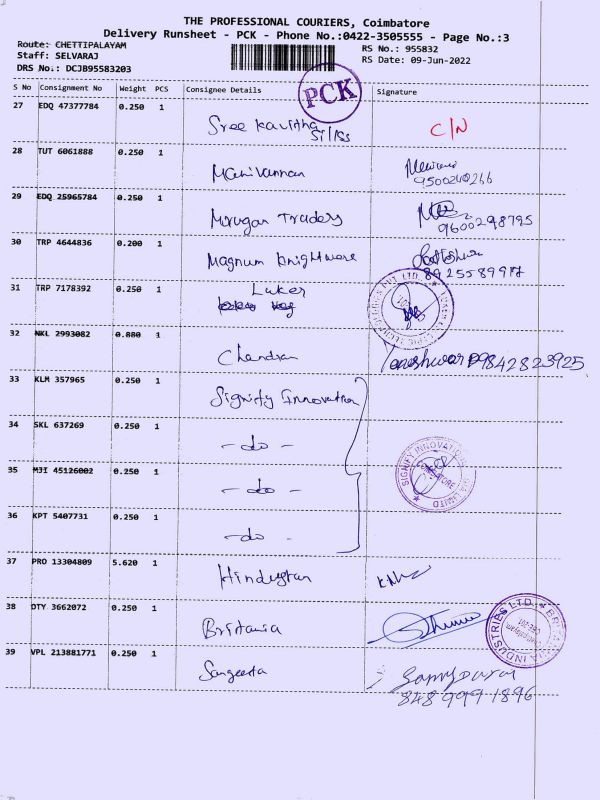 THE PROFESSIONAL COURIERS, Coimbatore
Delivery Runsheet - PCK - Phone No.:0422-3505555 - Page No.:3
Route: CHETTIPALAYAM
RS No.: 955832
Staff: SELVARAJ
RS Date: 09-Jun-2022
DRS No.: DCJB95583203
PCK
S No Consignment No Weight PCS Consignee Details Signature
27 EDQ 47377784 0.250 1
Sree Kavitha C/N
28 TUT 6061888 0.250 1
Manivannan
9500240266
29 EDQ 25965784 0.250 1
Murugan Traders 9600298795
30 TRP 4644836 0.200 1
Magnum Knightware
8925589977
31 TRP 7178392 0.250 1
Luker
32 NKL 2993082 0.880 1
Chandran 9842823925
33 KLM 357965 0.250 1
Signify Innovation
34 SKL 637269 0.250 1
- do -
SIGNIFY INNOVATIONS LIMITED
35 MJI 45126002 0.250 1
- do -
36 KPT 5407731 0.250 1
- do -
37 PRO 13304809 5.620 1
Hindustan
38 DTY 3662072 0.250 1
Britania
BRITANNIA INDUSTRIES LTD.
39 VPL 213881771 0.250 1
Sangeetha
848 999 1896